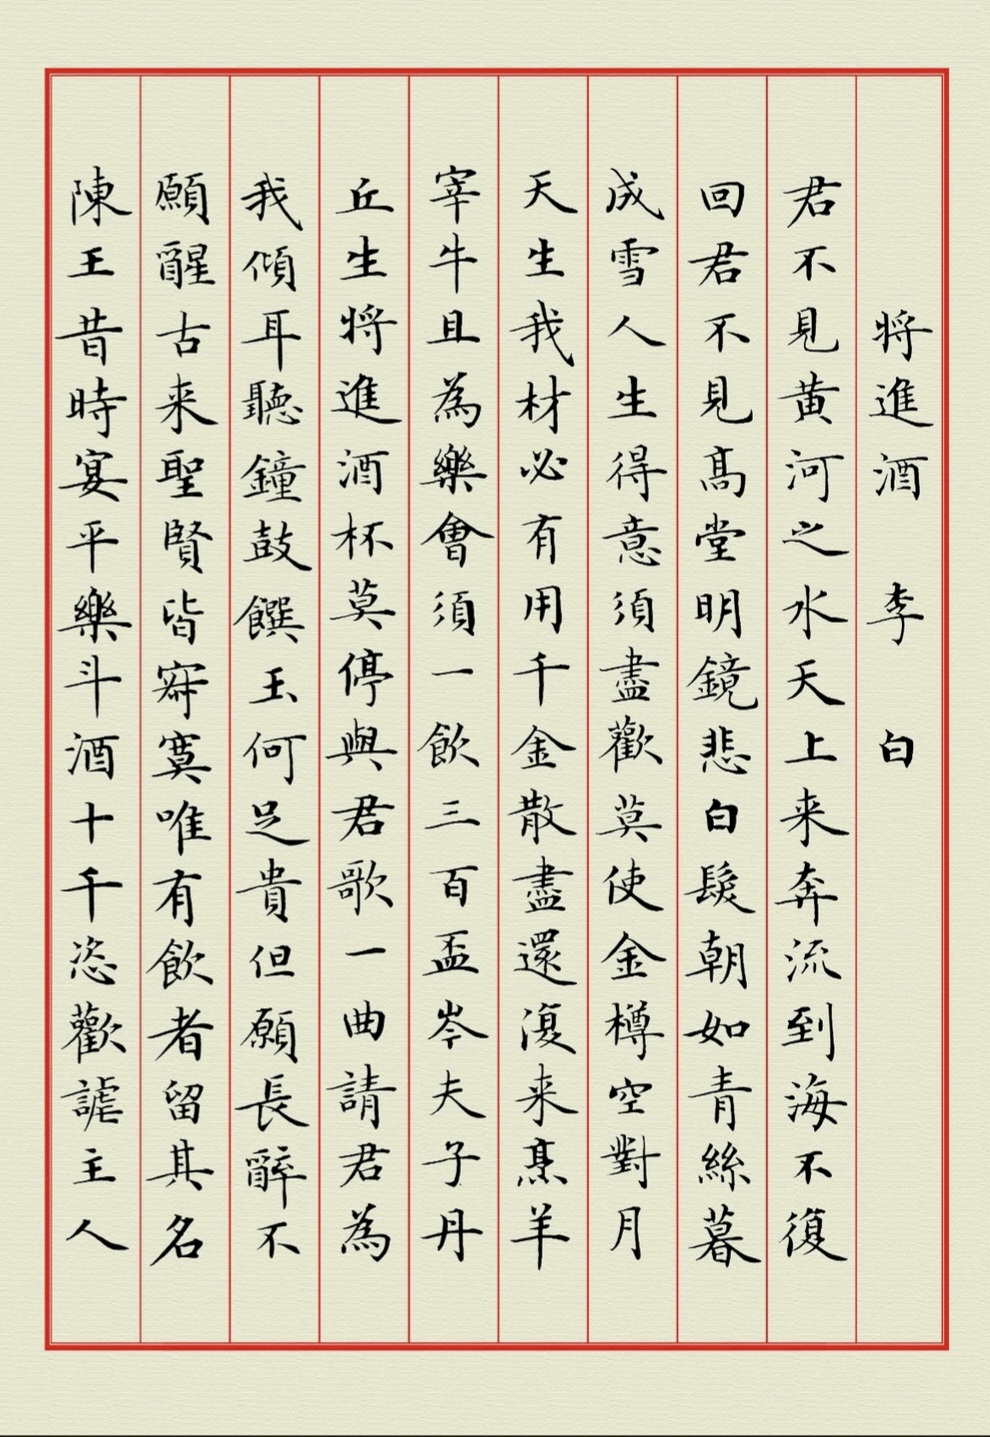 将進酒 李白
君不見黄河之水天上来奔流到海不復
回君不見髙堂明鏡悲白髮朝如青絲暮
成雪人生得意須盡歡莫使金樽空對月
天生我材必有用千金散盡還復来烹羊
宰牛且為樂會須一飲三百盃岑夫子丹
丘生将進酒杯莫停與君歌一曲請君為
我傾耳聽鐘鼓饌玉何足貴但願長醉不
願醒古来聖賢皆寂寞唯有飲者留其名
陳王昔時宴平樂斗酒十千恣歡謔主人